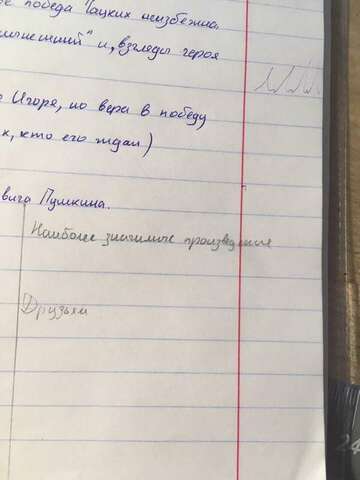 победа Чацких неизбежна.
и взгляды героя
Игоря, но вера в победу
к, кто его ждал)
вига Пушкина.
Наиболее значимые произведения
Друзья
24